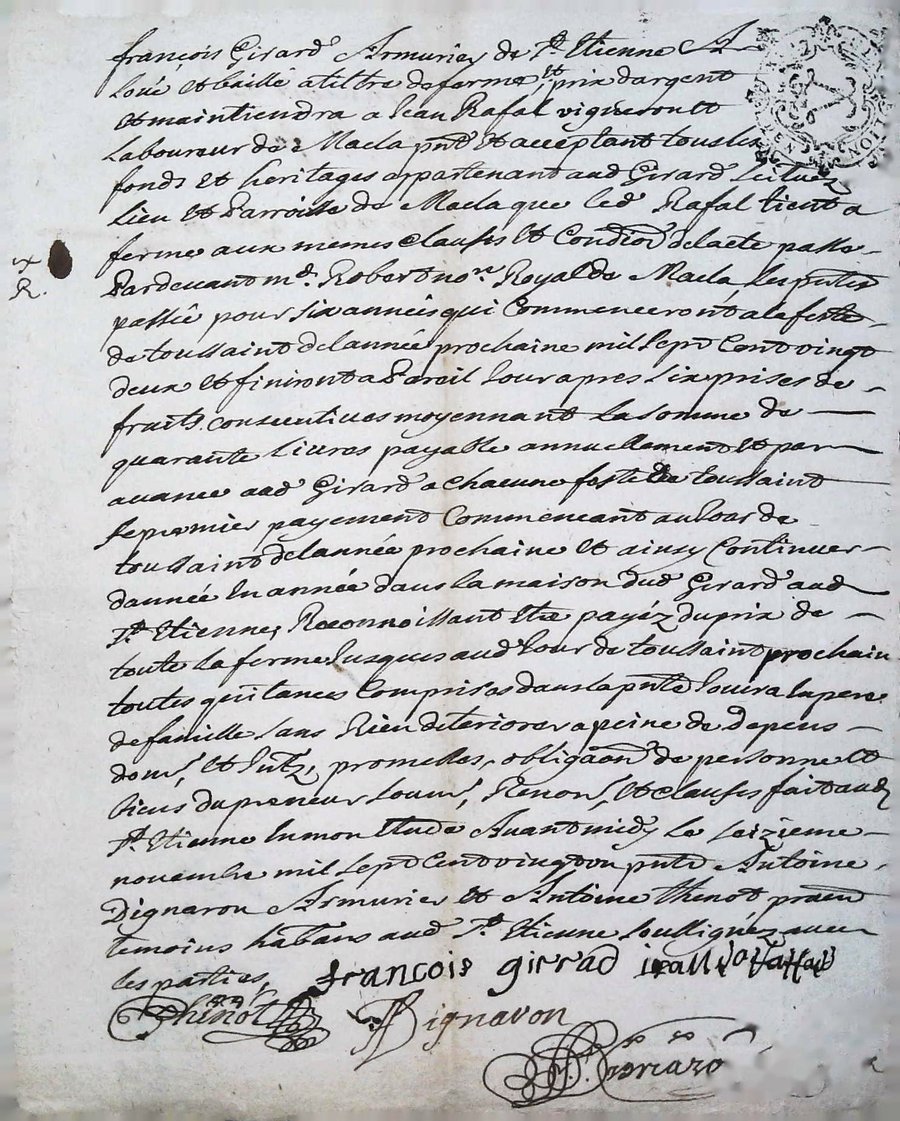 françois Girard Armurier de St Etienne A
Loüé et baille a tiltre de ferme et prix dargent
et maintiendra a Jean Rafal vigneron et
Laboureur de Macla pnt et acceptant tous les
fonds et heritages appartenant aud Girard scituez
Lieu et Parroisse de Macla que led Rafal tient a
ferme aux memes clauses et Condions de lacte passé
Pardevant me Robert nore Royal de Macla, Les pntes
passée pour six années qui Commenceront a la feste
de toussaint de lannée prochaine mil sept Cent vingt
deux et finiront a Pareil Jour apres six prises de
fruits consecutives moyennant La somme de
quarante Livres payable annuellement et par
avance aud Girard a chacune feste de toussaint
Le premier payement Commencant au Jour de
toussaint de lannée prochaine et ainsy Continuer
dannée En année dans la maison dud Girard aud
St Etienne, Reconnoissant Etre payéz du prix de
toute La ferme Jusques aud Jour de toussaint prochain
toutes quitances Comprises dans la pnte Jouira En pere
de famille sans Rien deteriorer a peine de Depens
doms, et Intz, promesses, obligaons de personne et
biens du preneur soums, Renons, et clauses fait aud
St Etienne En mon Etude Avant midy Le seizieme
novembre mil sept Cent vingt un pnts Antoine
Dignaron Armurier et Antoine Thenot praen
temoins habans aud St Etienne soussignéz avec
les parties,
françois girrad
Thenot Dignaron
x
R.